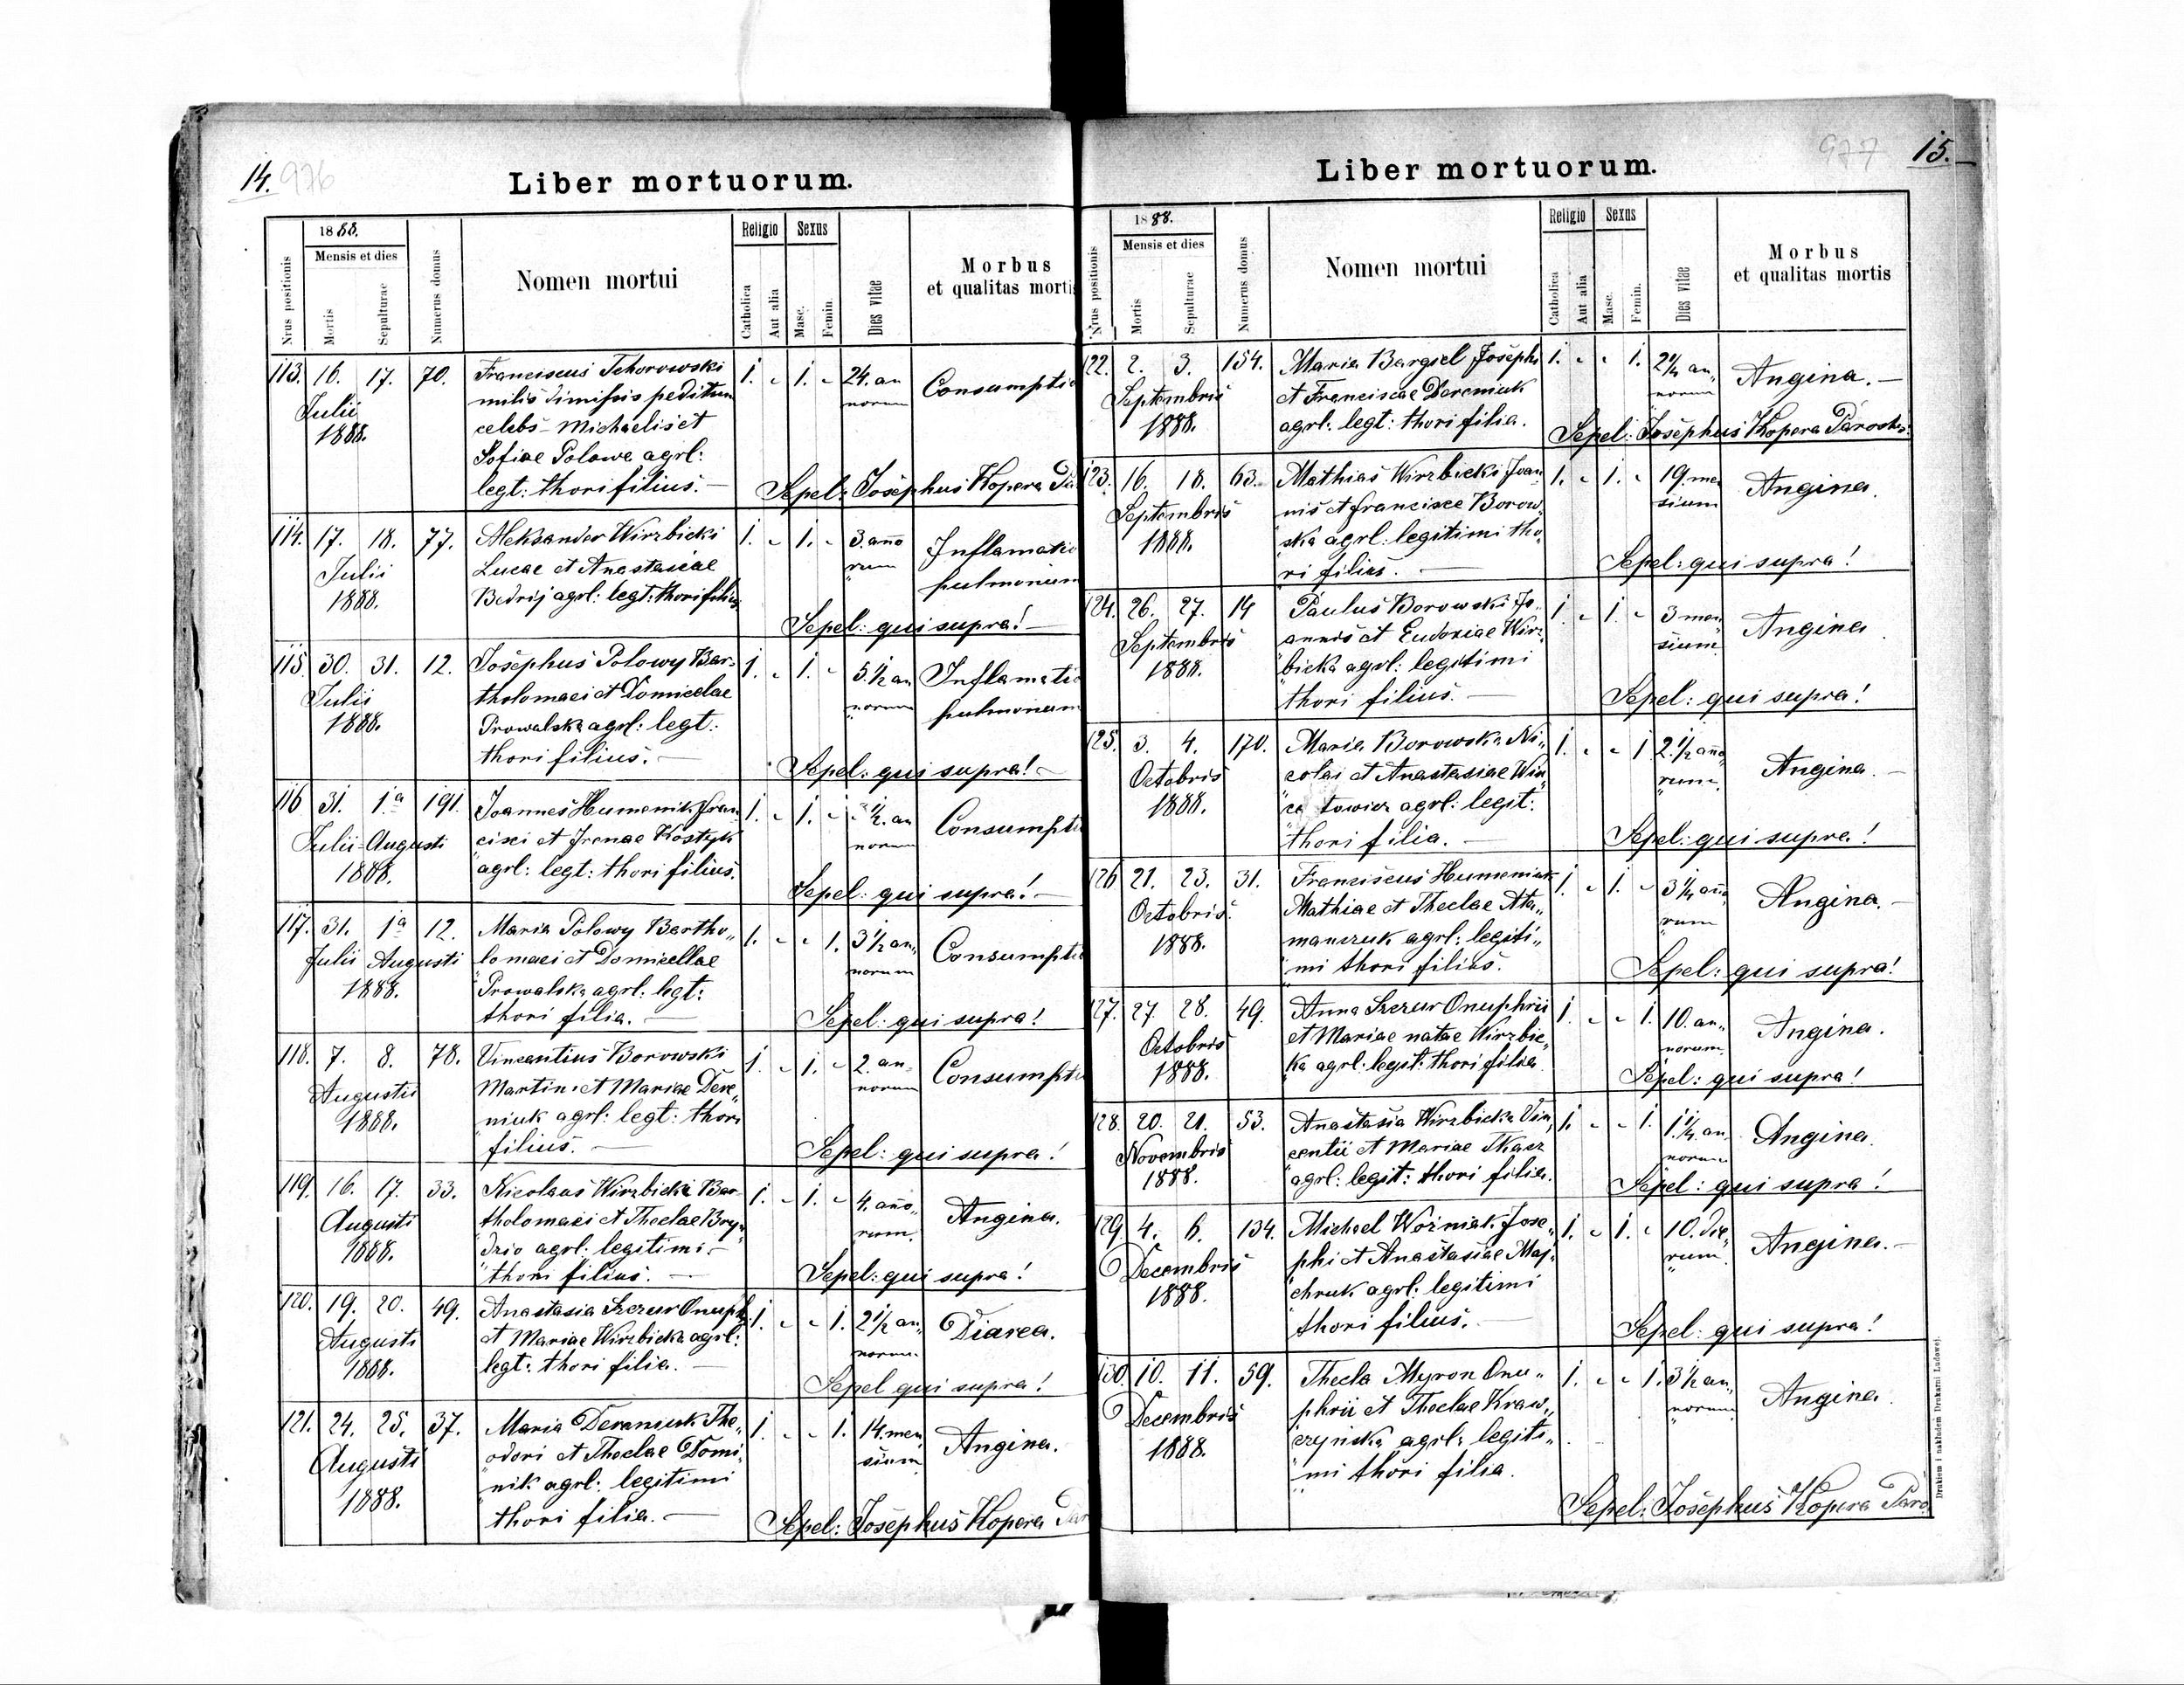 14. 976
Liber mortuorum.
1888.
Mensis et dies
Nrus positionis
Mortis
Sepulturae
Numerus domus
Nomen mortui
Religio
Catholica
Aut alia
Sexus
Masc.
Femin.
Dies vitae
Morbus
et qualitas mortis
113. 16. 17. 70. Franciscus Tchorowski 1. „ 1. „ 24. an
Julii milis dimissis peditum norum Consumptio
1888. celebs - Michaelis et
Sofiae Polowe agrl:
legt: thori filius. — Sepel: Josephus Kopera Pa
114. 17. 18. 77. Aleksander Wirzbicki 1. „ 1. „ 3. año Inflamatio
Julii Lucae et Anastasiae rum pulmonium
1888. Bedrij agrl: legt: thori filius
Sepel: qui supra! —
115. 30. 31. 12. Josephus Polowy Bar- 1. „ 1. „ 5.½ an Inflamatio
Julii tholomaei et Domicelae norum pulmonium
1888. Prowalska agrl: legt:
thori filius. — Sepel: qui supra! —
116 31. 1a 191. Joannes Humenik fran 1. „ 1. „ 3½. an Consumptio
Julii-Augusti cisci et Irenae Kostyk norum
1888. agrl: legt: thori filius.
Sepel: qui supra! —
117. 31. 1a 12. Maria Polowy Bartho„ 1. „ „ 1. 3½ an„ Consumptio
Julii Augusti lomaei et Domicellae norum
1888. Prowalska agrl: legt:
thori filia. — Sepel: qui supra!
118. 7. 8. 78. Vincentius Borowski 1. „ 1. „ 2. an„ Consumptio
Augusti Martini et Mariae Dere„ norum
1888. niuk agrl: legt: thori
filius. — Sepel: qui supra!
119. 16. 17. 33. Nicolaus Wirzbicki Bar- 1. „ 1. „ 4. año„ Angina.
Augusti tholomaei et Theclae Bry„ rum.
1888. drio agrl: legitimi —
thori filius. — Sepel: qui supra!
120. 19. 20. 49. Anastasia Szczur Onuph: 1. „ „ 1. 2½ an„ Diarea.
Augusti et Mariae Wirzbicka agrl: norum.
1888. legt: thori filia. —
Sepel qui supra!
121. 24. 25. 37. Maria Dereniuk The„ 1. „ „ 1. 14. men Angina.
Augusti odori et Theclae Domi„ sium
1888. nik agrl: legitimi
thori filia. — Sepel: Josephus Kopera Par
977 15.
Liber mortuorum.
1888.
Mensis et dies
Nrus positionis
Mortis
Sepulturae
Numerus domus
Nomen mortui
Religio
Catholica
Aut alia
Sexus
Masc.
Femin.
Dies vitae
Morbus
et qualitas mortis
122. 2. 3. 154. Maria Bargiel Josephi 1. „ „ 1. 2¼ an„ Angina. —
Septembris et Franciscae Dereniuk norum
1888. agrl: legt: thori filia. Sepel: Josephus Kopera Paroch:
123. 16. 18. 63. Mathias Wirzbicki Joan 1. „ 1. „ 19. men Angina.
Septembris nis et francisce Borow„ sium
1888. ska agrl: legitimi tho„
ri filius. — Sepel: qui supra!
124. 26. 27. 14 Paulus Borowski Jo„ 1. „ 1. „ 3 men Angina.
Septembris annis et Eudoxiae Wirz„ sium.
1888. bicka agrl: legitimi
thori filius. — Sepel: qui supra!
125. 3. 4. 170. Maria Borowska Ni„ 1. „ „ 1 2.½ año„ Angina. —
Octobris colai et Anastasiae Win„ rum.
1888. ce towicz agrl: legit:
thori filia. — Sepel: qui supra!
126 21. 23. 31. Franciscus Humeniuk 1. „ 1. „ 3¼ año Angina. —
Octobris. Mathiae et Theclae Ata„ rum
1888. manczuk agrl: legiti„
mi thori filius. Sepel: qui supra!
127. 27. 28. 49. Anna Szczur Onuphrii 1. „ „ 1. 10. an„ Angina.
Octobris et Mariae natae Wirzbic„ norum.
1888. ka agrl: legit: thori filia
Sepel: qui supra!
128. 20. 21. 53. Anastasia Wirzbicka Vin„ 1. „ „ 1. 1.¼ an„ Angina.
Novembris centii et Mariae Tkacz norum
1888. agrl: legit: thori filia.
Sepel: qui supra!
129 4. 6. 134. Michael Wozniak Jose„ 1. „ 1. „ 10. die„ Angina. —
Decembris phi et Anastasiae Maj„ rum.
1888. chruk agrl: legitimi
thori filius. — Sepel: qui supra!
130. 10. 11. 59. Thecla Myron Onu„ 1. „ „ 1. 3½ an„ Angina.
Decembris phrii et Theclae Kraw„ norum.
1888. czyńska agrl: legiti„
mi thori filia.
Sepel: Josephus Kopera Paro
Drukiem i nakładem Drukarni Ludowej.